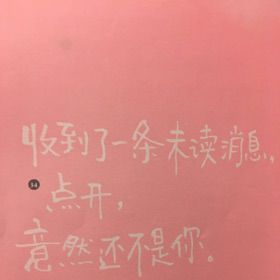 收到了一条未读消息,
34
点开,
竟然还不是你。